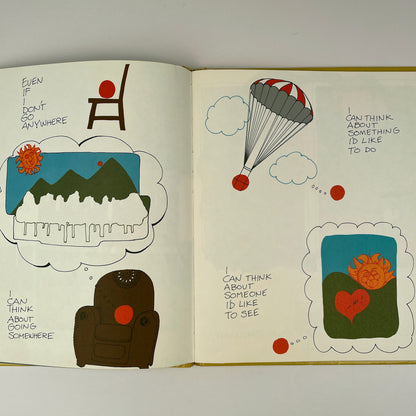 EVEN
IF
I
DON'T
GO
ANYWHERE
I
CAN
THINK
ABOUT
GOING
SOMEWHERE
I
CAN THINK
ABOUT
SOMETHING
I'D LIKE
TO DO
I
CAN THINK
ABOUT
SOMEONE
I'D LIKE
TO SEE